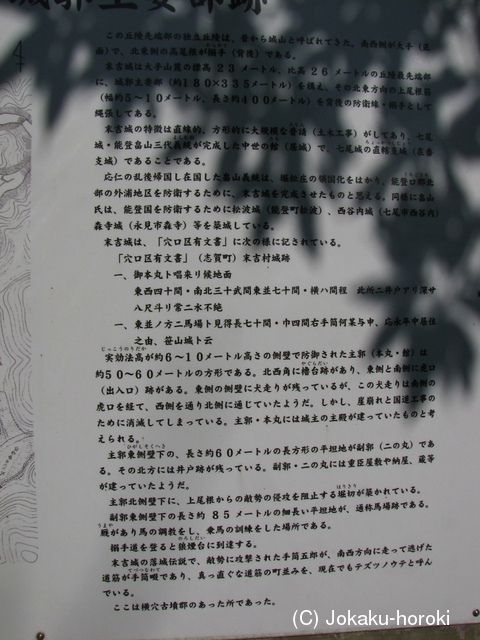 城郭主要部跡
この丘陵先端部の独立丘陵は、昔から城山と呼ばれてきた。南西側が大手（正
面）で、北東側の高尾根が搦手（背後）である。
末吉城は大手山麓の標高23メートル、比高26メートルの丘陵最先端部
に、城郭主要部（約180×335メートル）を構え、その北東方向の上尾根筋
（幅約5〜10メートル、長さ約400メートル）を背後の防衛線・搦手として
縄張してある。
末吉城の特徴は直線的、方形的に大規模な普請（土木工事）がしてあり、七尾
城・能登畠山三代義統が完成した中世の館（居城）で、七尾城の直轄支城（直番
支城）であることである。
応仁の乱後帰国し在国した畠山義統は、堀松庄の領国化をはかり、能登口郡北
部の外浦地区を防衛するために、末吉城を完成させたものと思える。同様に畠山
氏は、能登国を防衛するために松波城（能登町松波）、西谷内城（七尾市西谷内）
森寺城（氷見市森寺）等を築城している。
末吉城は、「穴口区有文書」に次の様に記されている。
「穴口区有文書」（志賀町）末吉村城跡
一、御本丸ト唱来リ候地面
東西四十間・南北三十弐間東並七十間・横ハ間程 此所二井戸アリ深サ
八尺斗リ常二水不絶
一、東並ノ方二馬場ト見得長七十間・巾四間右手筒何某与申、応永年中居住
之由、笹山城ト云
実効法高が約6〜10メートル高さの側壁で防御された主郭（本丸・館）は
約50〜60メートルの方形である。北西角に櫓台跡があり、東側と南側に虎口
（出入口）跡がある。東側の側壁に犬走りが残っているが、この犬走りは南側の
虎口を経て、西側を通り北側に通じていたようだ。しかし、崖崩れと国道工事の
ために消滅してしまっている。主郭・本丸には城主の主殿が建っていたものと考
えられる。
主郭東側壁下の、長さ約60メートルの長方形の平坦地が副郭（二の丸）であ
る。その北方には井戸跡が残っている。副郭・二の丸には重臣屋敷や納屋、蔵等
が建っていたようだ。
主郭北側壁下に、上尾根からの敵勢の侵攻を阻止する堀切が築かれている。
副郭東側壁下の長さ約85メートルの細長い平坦地が、通称馬場跡である。
厩があり馬の調教をし、乗馬の訓練をした場所である。
搦手道を登ると狼煙台に到達する。
末吉城の落城伝説で、敵勢に攻撃された手筒五郎が、南西方向に走って逃げた
道筋が手筒畷であり、真っ直ぐな道筋の町並みを、現在でもテズツノウテと呼ん
でいる。
ここは横穴古墳郡のあった所であった。
(C) Jokaku-horoki